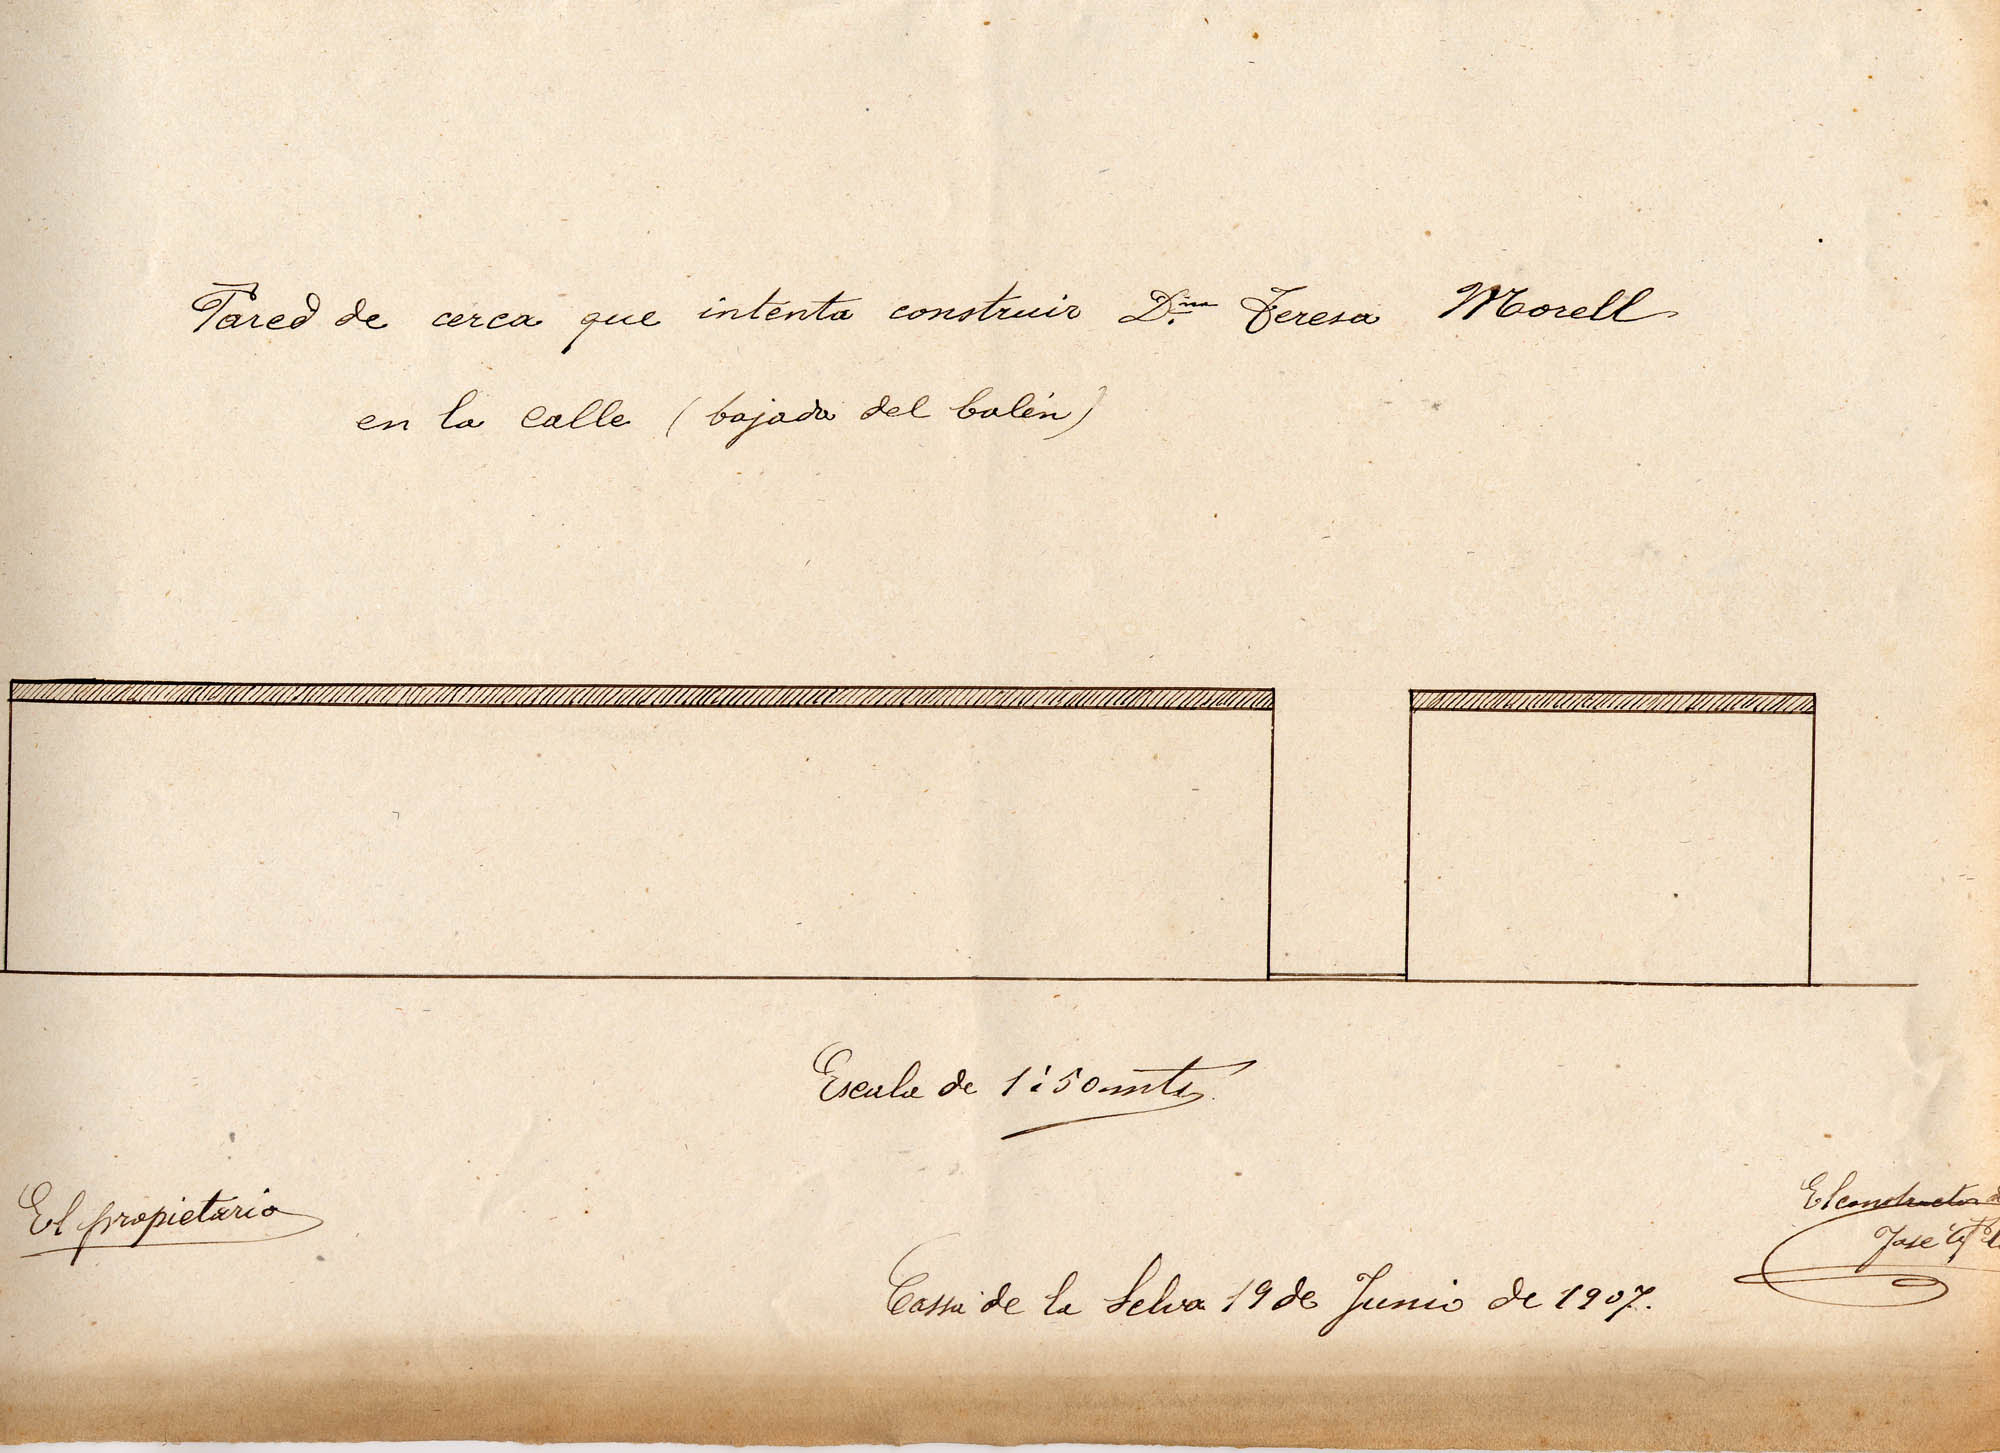 Pared de cerca que intenta construir D.ña Teresa Morell
en la calle (bajada del balén)
Escala de 1 i 50 mts.
El propietario
El constructor
José
Cassa de la Selva 19 de Junio de 1907.